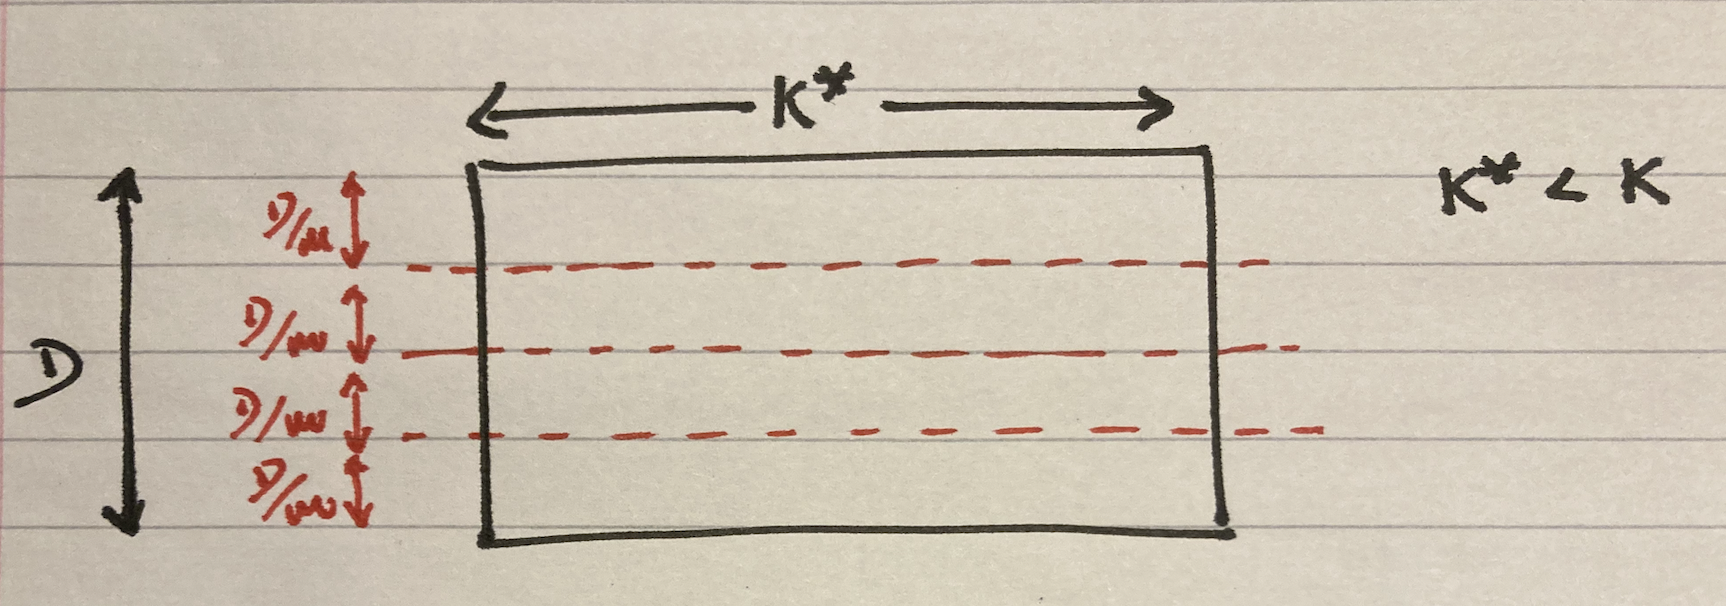 K*
K* < K
D/m
D/m
D
D/m
D/m